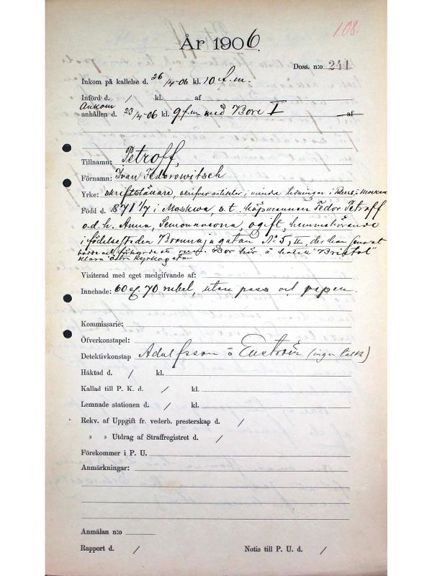 108.
År 1906.
Doss. n:o 241
Inkom på kallelse d. 26/4-06 kl. 10 f.m.
Införd d. / kl. af
Ankom
anhållen d. 23/4-06 kl. 9 f.m. med Bore I af
Tillnamn: Petroff,
Förnamn: Ivan Fedorowitsch
Yrke: skriftställare, skrifver artiklar i
Född d. 1871 1/7 i Moskwa, o.ä. köpmannen Fedor Petroff
o.d.h. Anna Semonowna, ogift, hemmahörande
i födelsestaden gatan N:o 5, der han senast
Bor här å hotell Bristol
Klara östra kyrkogatan
Visiterad med eget medgifvande af:
Innehade: 60 à 70 rubel, utan pass och papper.
Kommissarie:
Öfverkonstapel:
Detektivkonstap Adolfsson o (ingen tolk)
Häktad d. / kl.
Kallad till P. K. d. / kl.
Lemnade stationen d. / kl.
Rekv. af Uppgift fr. vederb. presterskap d. /
» » Utdrag af Straffregistret d. /
Förekommer i P. U.
Anmärkningar:
Anmälan n:o
Rapport d. / Notis till P. U. d. /